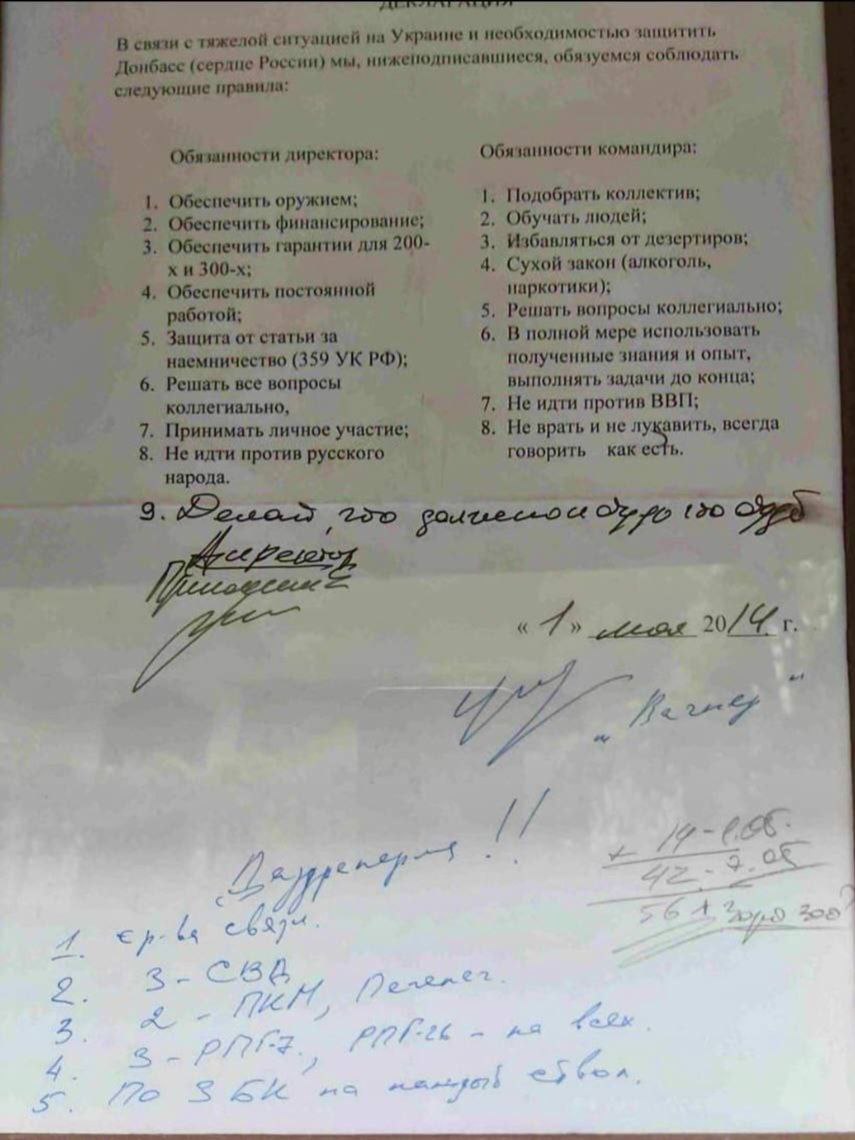 ДЕКЛАРАЦИЯ
В связи с тяжелой ситуацией на Украине и необходимостью защитить
Донбасс (сердце России) мы, нижеподписавшиеся, обязуемся соблюдать
следующие правила:
Обязанности директора:
1. Обеспечить оружием;
2. Обеспечить финансирование;
3. Обеспечить гарантии для 200-
х и 300-х;
4. Обеспечить постоянной
работой;
5. Защита от статьи за
наемничество (359 УК РФ);
6. Решать все вопросы
коллегиально,
7. Принимать личное участие;
8. Не идти против русского
народа.
Обязанности командира:
1. Подобрать коллектив;
2. Обучать людей;
3. Избавляться от дезертиров;
4. Сухой закон (алкоголь,
наркотики);
5. Решать вопросы коллегиально;
6. В полной мере использовать
полученные знания и опыт,
выполнять задачи до конца;
7. Не идти против ВВП;
8. Не врать и не лукавить, всегда
говорить как есть.
9. Делай, что должно и будь что будет
Директор
« 1 » мая 2014 г.
„Вагнер"
!!
14 - 1.05.
42 - 7.05
56
1. связи.
2. 3 - СВД
3. 2 - ПКМ, Печенег.
4. 3 - РПГ-7, РПГ-26 - на всех.
5. По 3 БК на каждый ствол.